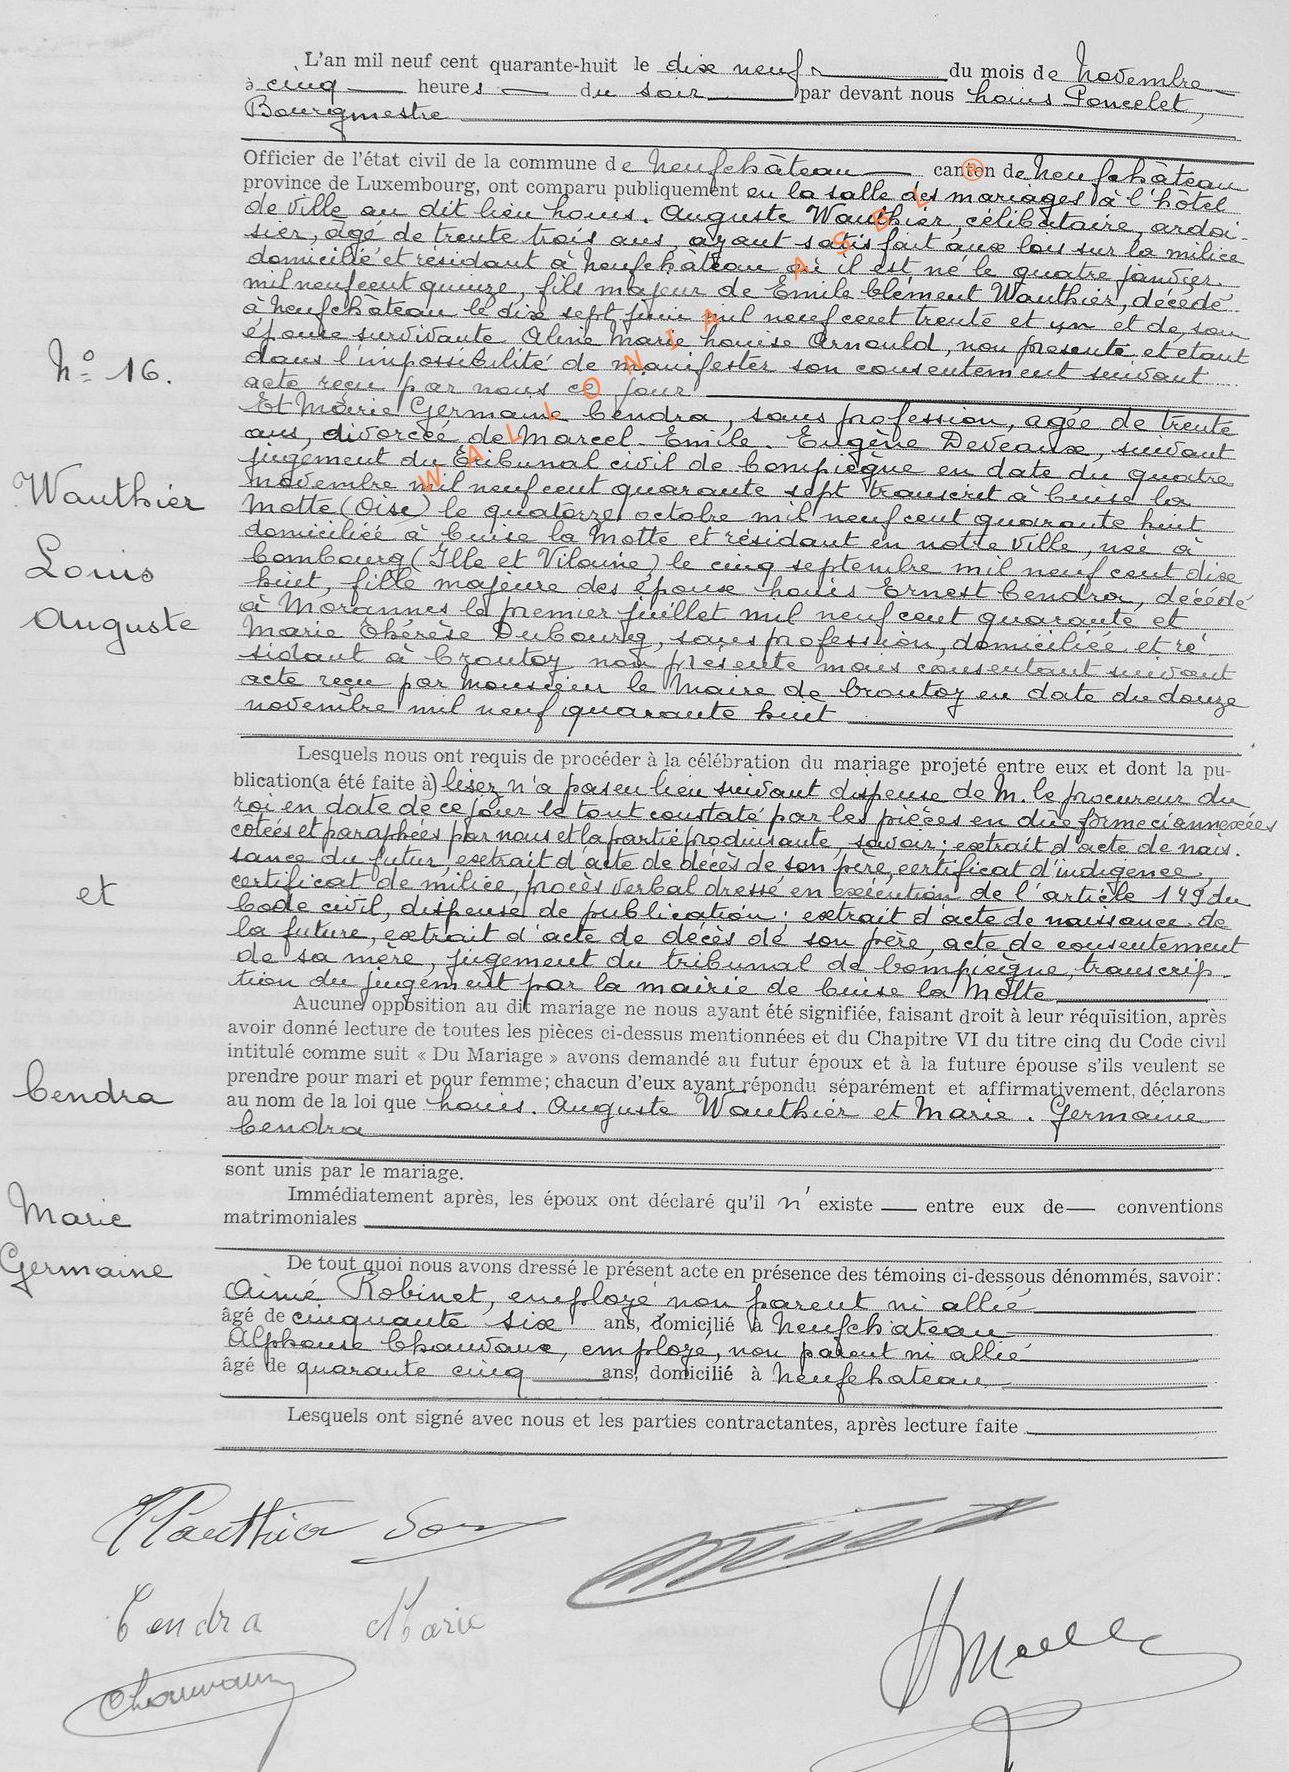 L'an mil neuf cent quarante-huit le dix neuf du mois de Novembre
à cinq heures du soir par devant nous Louis Poncelet,
Bourgmestre
Officier de l'état civil de la commune de Neufchâteau canton de Neufchâteau
province de Luxembourg, ont comparu publiquement en la salle des mariages à l'hôtel
de ville au dit lieu Louis. Auguste Wauthier, célibataire, ardoi-
sier, âgé de trente trois ans, ayant satisfait aux lois sur la milice
domicilié et résidant à Neufchâteau où il est né le quatre janvier
mil neuf cent quinze, fils majeur de Emile Clément Wauthier, décédé
à Neufchâteau le dix sept juin mil neuf cent trente et un et de son
épouse survivante Aline Marie Louise Arnould, non présente et étant
dans l'impossibilité de manifester son consentement suivant
acte reçu par nous ce jour
N° 16.
Et Marie Germaine Cendra, sans profession, agée de trente
ans, divorcée de Marcel. Emile. Eugène Deveaux, suivant
jugement du Tribunal civil de Compiègne en date du quatre
novembre mil neuf cent quarante sept transcrit à Cuise la
Motte (Oise) le quatorze octobre mil neuf cent quarante huit
domiciliée à Cuise la Motte et résidant en notre ville, née à
Combourg (Ille et Vilaine) le cinq septembre mil neuf cent dix
huit, fille majeure des épouse Louis Ernest Cendra, décédé
à Morannes le premier juillet mil neuf cent quarante et
Marie Thérèse Dubourg, sans profession, domiciliée et ré-
sidant à Croutoy non présente mais consentant suivant
acte reçu par Monsieur le Maire de Croutoy en date du douze
novembre mil neuf quarante huit
Wauthier
Louis
Auguste
et
Cendra
Marie
Germaine
Lesquels nous ont requis de procéder à la célébration du mariage projeté entre eux et dont la pu-
blication (a été faite à) lisez n'a pas eu lieu suivant dispense de M. le procureur du
roi en date de ce jour le tout constaté par les pièces en due forme ci annexées
côtées et paraphées par nous et la partie produisante, savoir: extrait d'acte de nais.
sance du futur, extrait d'acte de décès de son père, certificat d'indigence,
certificat de milice, procès verbal dressé en exécution de l'article 149 du
Code civil, dispense de publication; extrait d'acte de naissance de
la future, extrait d'acte de décès de son père, acte de consentement
de sa mère, jugement du tribunal de Compiègne, transcrip-
tion du jugement par la mairie de Cuise la Motte
Aucune opposition au dit mariage ne nous ayant été signifiée, faisant droit à leur réquisition, après
avoir donné lecture de toutes les pièces ci-dessus mentionnées et du Chapitre VI du titre cinq du Code civil
intitulé comme suit « Du Mariage » avons demandé au futur époux et à la future épouse s'ils veulent se
prendre pour mari et pour femme; chacun d'eux ayant répondu séparément et affirmativement, déclarons
au nom de la loi que Louis. Auguste Wauthier et Marie. Germaine
Cendra
sont unis par le mariage.
Immédiatement après, les époux ont déclaré qu'il n'existe entre eux de conventions
matrimoniales
De tout quoi nous avons dressé le présent acte en présence des témoins ci-dessous dénommés, savoir:
Aimé Robinet, employé non parent ni allié
âgé de cinquante six ans, domicilié à Neufchateau
Alphonse Chauvaux, employé, non parent ni allié
âgé de quarante cinq ans, domicilié à Neufchateau
Lesquels ont signé avec nous et les parties contractantes, après lecture faite
Wauthier Louis
Cendra Marie
Chauvaux
WALLONIA ASBL ®